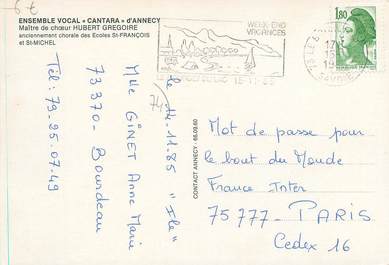 6 €
ENSEMBLE VOCAL « CANTARA » d'ANNECY
Maître de chœur HUBERT GREGOIRE
anciennement chorale des Ecoles St-FRANÇOIS
et St-MICHEL
WEEK-END
VACANCES
15-11-85
1,80
CONTACT ANNECY - 65.09.60
le 14.11.85 "Ile"
74
Mlle GINET Anne Marie
73370 - Bourdeau
Tél: 79.25.07.49
Mot de passe pour
le bout du Monde
France Inter
75777 - PARIS
Cedex 16